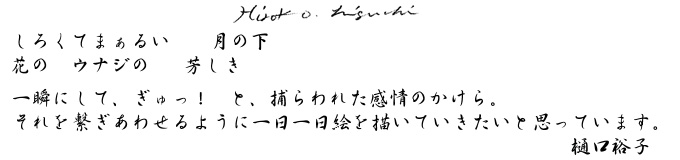 Hiroko. Higuchi
しろくてまぁるい　　月の下
花の　ウナジの　　芳しき
一瞬にして、ぎゅっ！　と、捕らわれた感情のかけら。
それを繋ぎあわせるように一日一日絵を描いていきたいと思っています。
樋口裕子